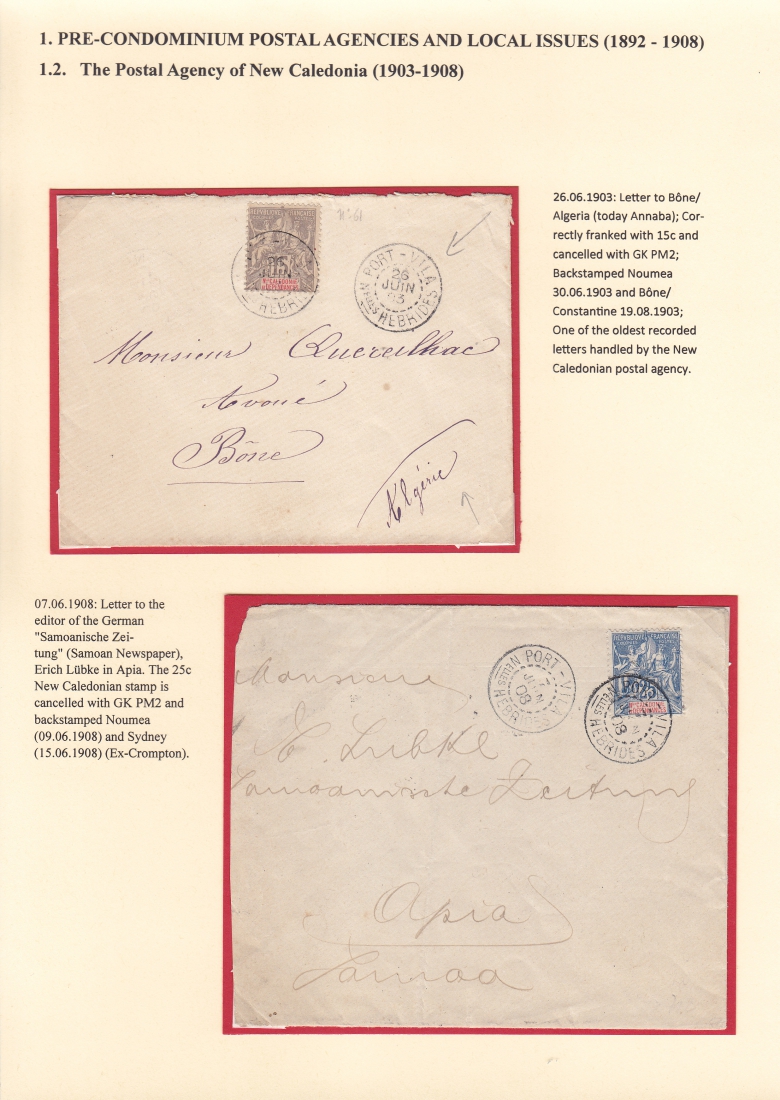 1. PRE-CONDOMINIUM POSTAL AGENCIES AND LOCAL ISSUES (1892 - 1908)
1.2. The Postal Agency of New Caledonia (1903-1908)
26.06.1903: Letter to Bône/
Algeria (today Annaba); Cor-
rectly franked with 15c and
cancelled with GK PM2;
Backstamped Noumea
30.06.1903 and Bône/
Constantine 19.08.1903;
One of the oldest recorded
letters handled by the New
Caledonian postal agency.
REPUBLIQUE FRANÇAISE
26
JUIN
HEBRI
PORT - VILA
26
JUIN
03
NELLES HEBRIDES
Monsieur Quereilhac
Avoué
Bône
Algérie
07.06.1908: Letter to the
editor of the German
"Samoanische Zei-
tung" (Samoan Newspaper),
Erich Lübke in Apia. The 25c
New Caledonian stamp is
cancelled with GK PM2 and
backstamped Noumea
(09.06.1908) and Sydney
(15.06.1908) (Ex-Crompton).
REPUBLIQUE FRANÇAISE
PORT - VILA
7
JUIN
08
NELLES HEBRIDES
VILA
08
HEBRIDES
Monsieur
E. Lübke
Samoanische Zeitung
Apia
Samoa